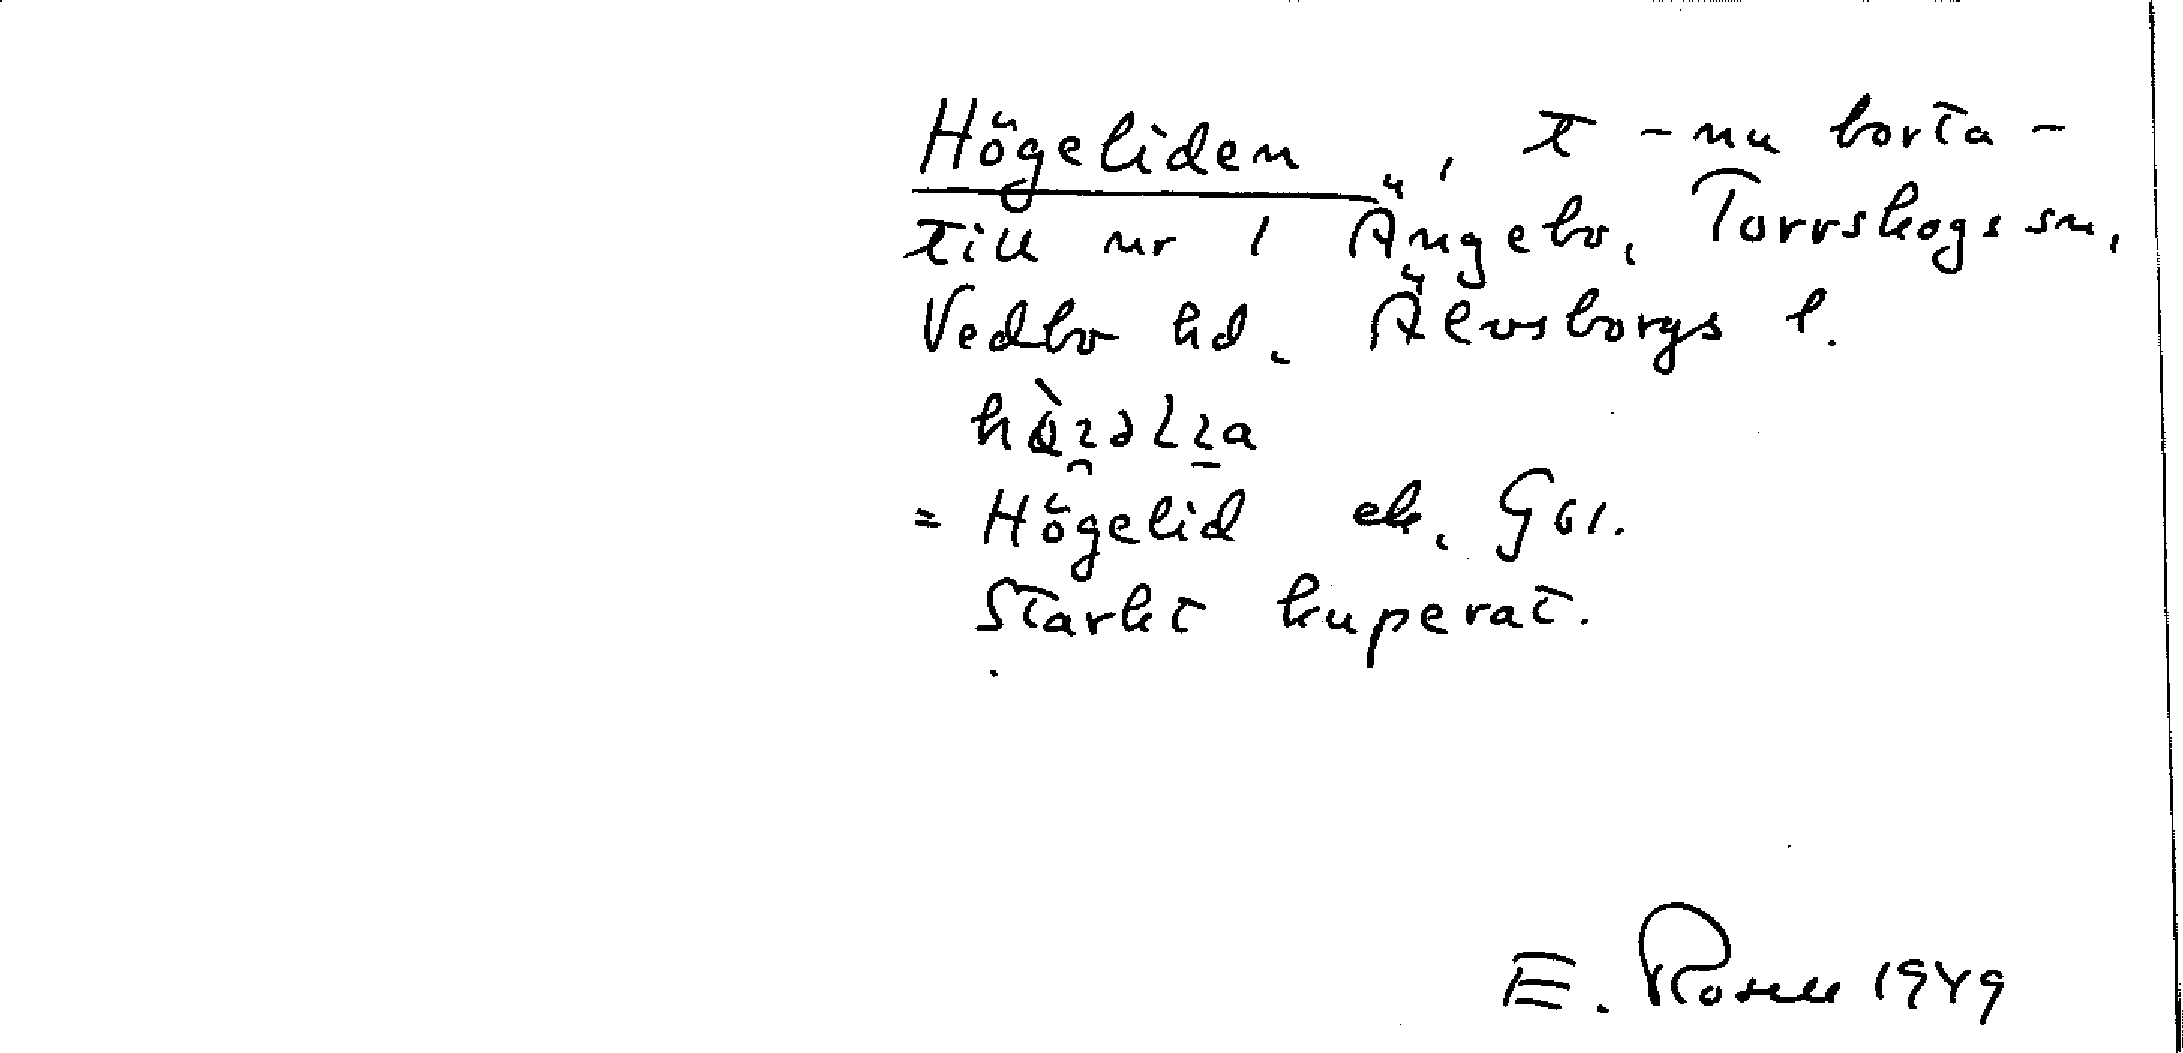 Högeliden, t - nu borta -
till nr 1 Ängebo, Torrskogs sn,
Vedbo hd. Älvsborgs l.
= Högelid ek. G61.
Starkt kuperat.
E. Rosell 1949